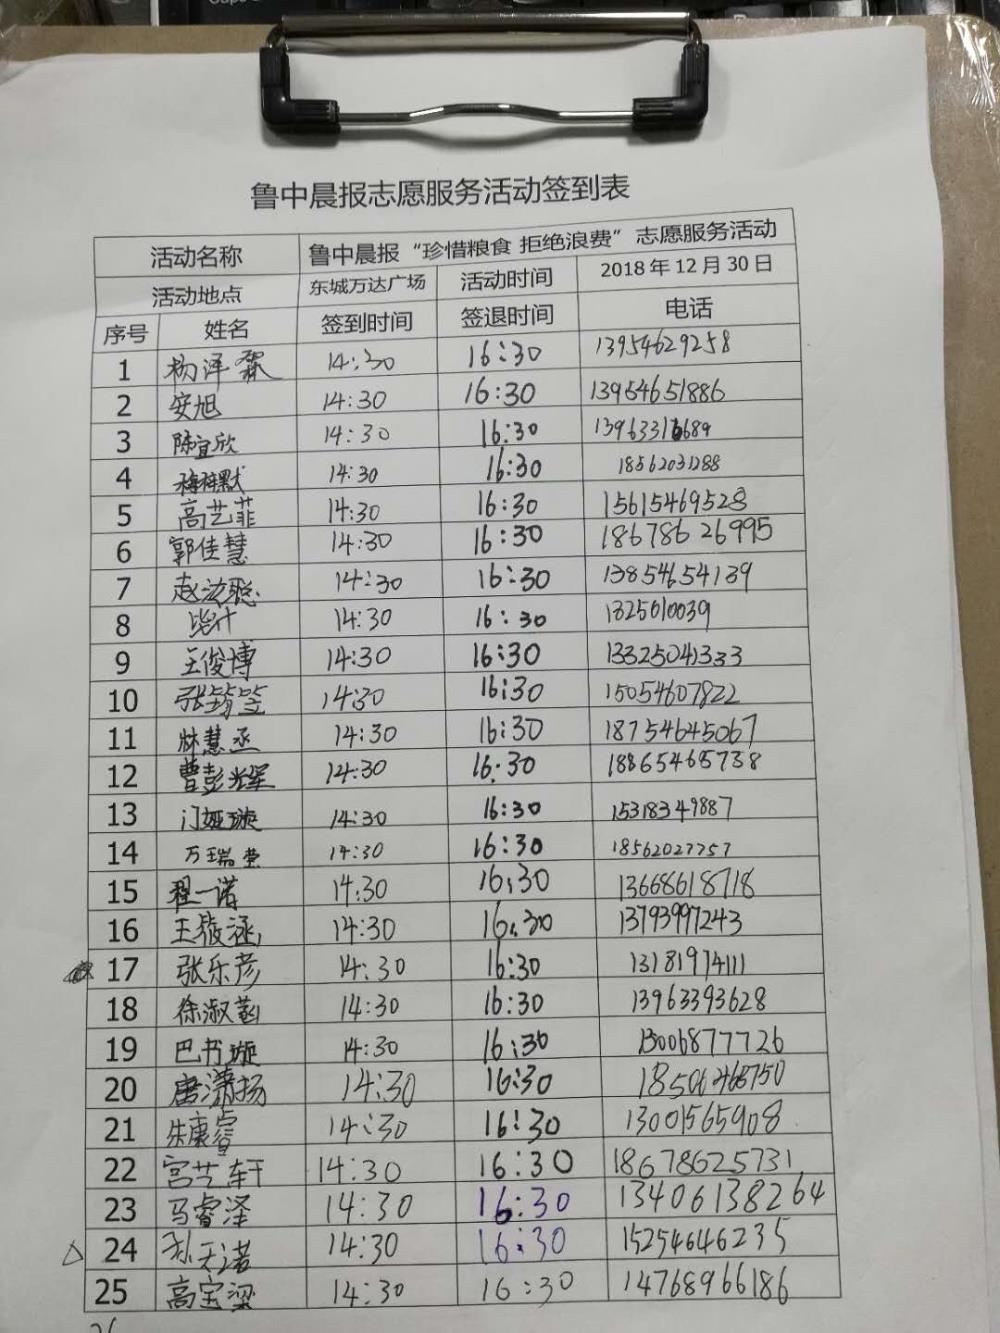 鲁中晨报志愿服务活动签到表
活动名称 鲁中晨报“珍惜粮食 拒绝浪费”志愿服务活动
活动地点 东城万达广场 活动时间 2018年12月30日
序号 姓名 签到时间 签退时间 电话
1 杨泽 14:30 16:30 13954629258
2 安旭 14:30 16:30 13954651886
3 陈宜欣 14:30 16:30 13963316689
4 14:30 16:30 18562031288
5 高艺菲 14:30 16:30 15615469528
6 郭佳慧 14:30 16:30 18678626995
7 赵法聪 14:30 16:30 13854654139
8 14:30 16:30 1325010039
9 王俊博 14:30 16:30 13325041333
10 张 14:30 16:30 15054607822
11 林慧丞 14:30 16:30 18754645067
12 曹彭辉 14:30 16:30 18865465738
13 门娅璇 14:30 16:30 15318349887
14 万瑞莹 14:30 16:30 18562027757
15 程一诺 14:30 16:30 13668618718
16 王筱涵 14:30 16:30 13793997243
17 张乐彦 14:30 16:30 13181974111
18 徐淑菡 14:30 16:30 13963393628
19 巴书璇 14:30 16:30 13006877726
20 唐潇扬 14:30 16:30
21 朱康睿 14:30 16:30 13001565908
22 宫艺轩 14:30 16:30 18678625731
23 马睿泽 14:30 16:30 13406138264
24 孙天诺 14:30 16:30 15254646235
25 高宝梁 14:30 16:30 14768966186